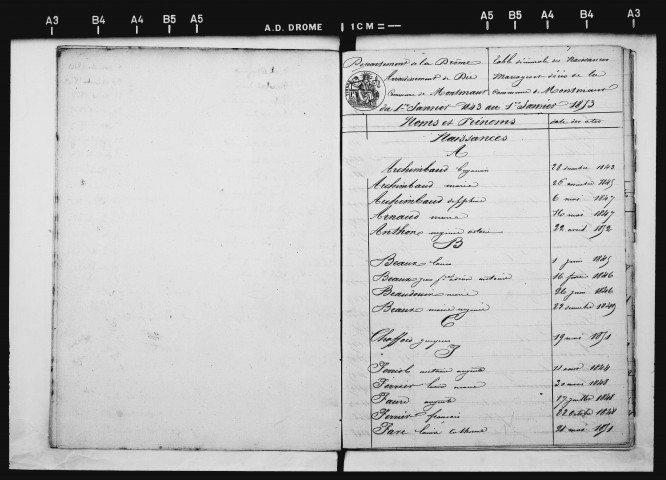 A3 B4 A4 B5 A5 A.D. DROME 1CM A5 B5 A4 B4 A3
Département de la Drôme
Arrondissement de Die
Commune de Montmaur
Table décennale des Naissances
Mariages et décès de la
Commune de Montmaur
du 1er Janvier 1843 au 1er Janvier 1853
Noms et Prénoms date des actes
Naissances
A
Archimbaud 1843
Archimbaud marie 26 1845
Archimbaud delphine 6 mai 1847
Arnaud marie 16 mai 1847
Anthon 22 avril 1852
B
Beaux louis 1 juin 1845
Beaux antoine 16 février 1846
Beaudouin marie 26 juin 1846
Beaux marie 22 décembre 1849
C
Chaffois jacques 19 mai 1851
F
antoine auguste 11 août 1844
Ferrier louis 20 mars 1848
Faure auguste 17 juillet 1848
Ferrier françois 22 octobre 1848
Fare 21 mai 1851